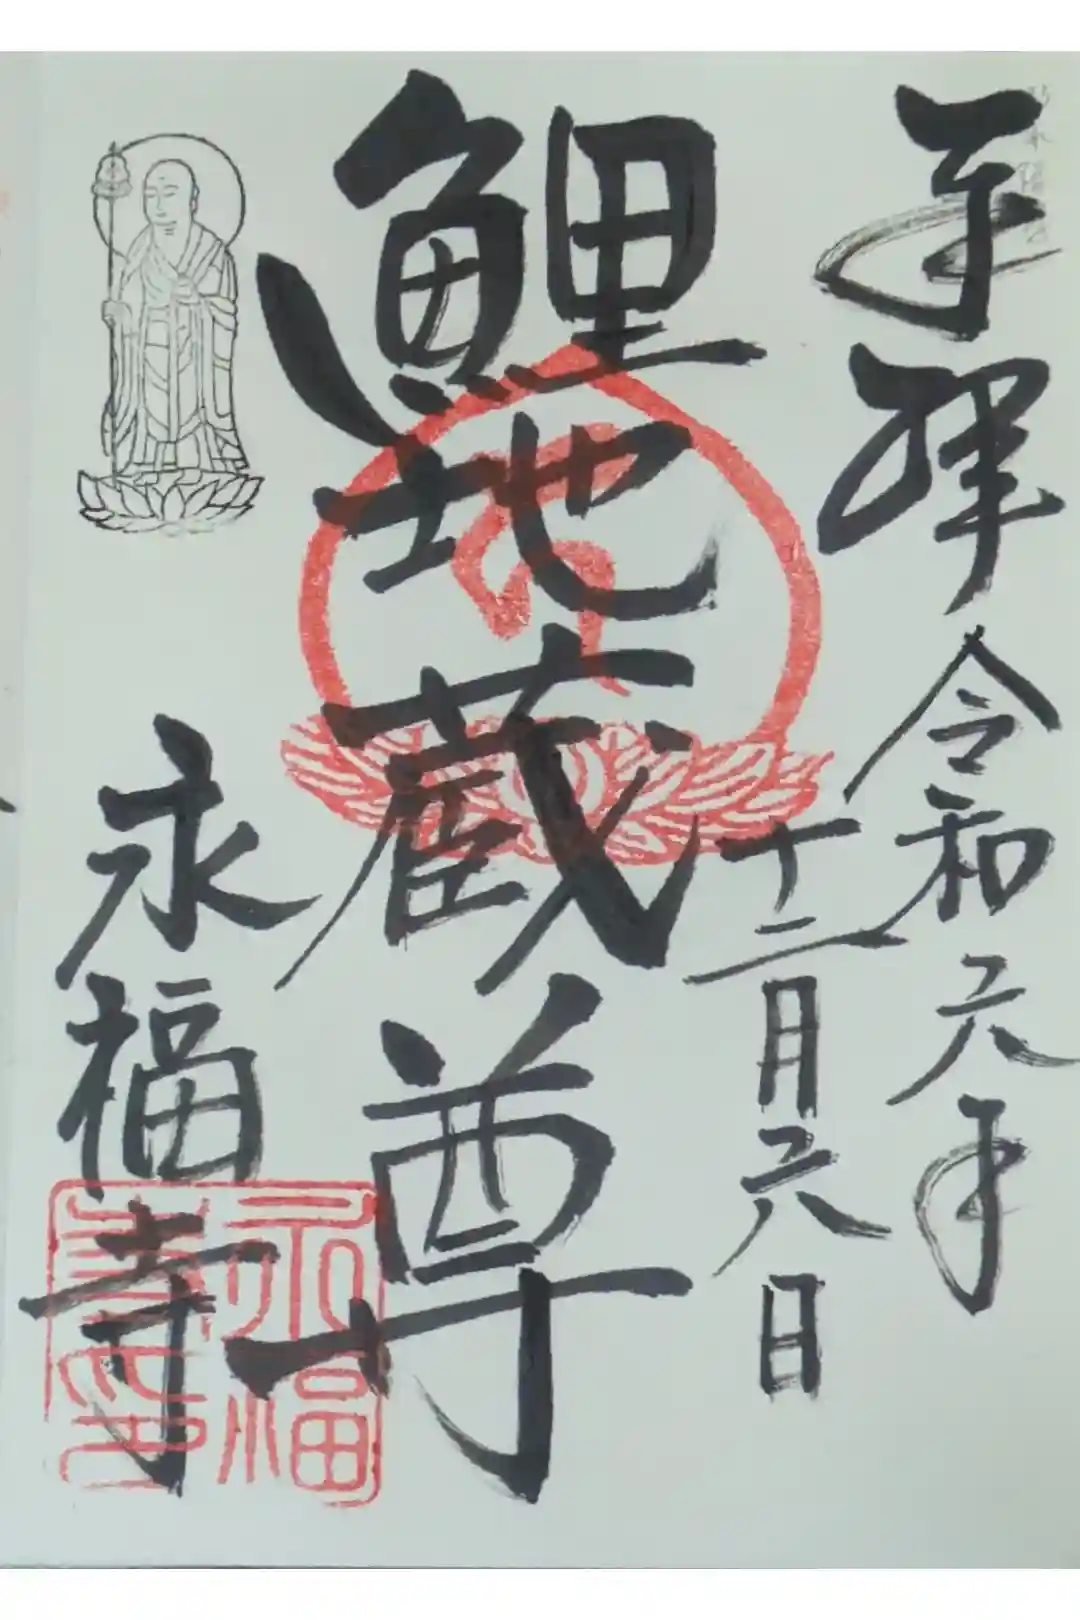 奉拝 令和六年
十二月六日
鯉地蔵尊
永福寺
永福
寺印